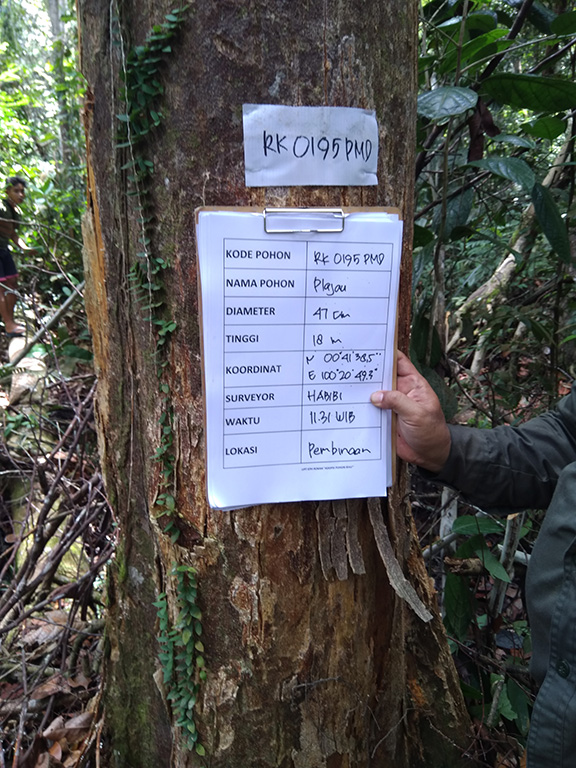 RK 0195 PMD
KODE POHON RK 0195 PMD
NAMA POHON Plajau
DIAMETER 47 cm
TINGGI 18 m
KOORDINAT N 00°41'38,5"
E 100°20'49.3"
SURVEYOR HABIBI
WAKTU 11.31 WIB
LOKASI Pembinaan